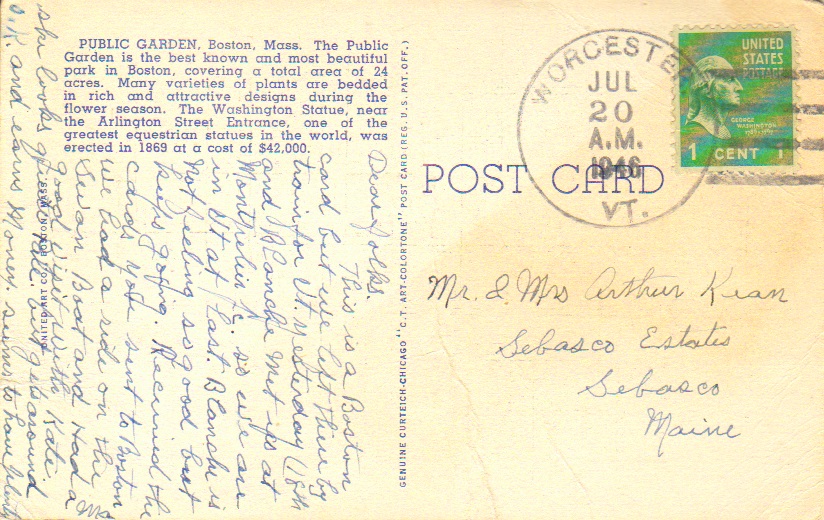 PUBLIC GARDEN, Boston, Mass. The Public
Garden is the best known and most beautiful
park in Boston, covering a total area of 24
acres. Many varieties of plants are bedded
in rich and attractive designs during the
flower season. The Washington Statue, near
the Arlington Street Entrance, one of the
greatest equestrian statues in the world, was
erected in 1869 at a cost of $42,000.
Dear folks.
This is a Boston
card but we left there by
train for Vt. yesterday (18th
and Blanche met us at
Montpelier Jc. so we are
in Vt at last. Blanche is
not feeling so good but
keeps going. Received the
cards you sent to Boston
we had a ride on the
Swan Boat and Had a
good visit with Kate.
she looks quite pale but gets around
O.K. and earns Money. seems to have plenty
UNITED ART CO., BOSTON, MASS.
GENUINE CURTEICH-CHICAGO "C.T. ART-COLORTONE" POST CARD (REG. U.S. PAT. OFF.)
POST CARD
WORCESTER
JUL
20
A.M.
1946
VT.
UNITED
STATES
POSTAGE
GEORGE
WASHINGTON
1 CENT 1
Mr. & Mrs Arthur Kean
Sebasco Estates
Sebasco
Maine